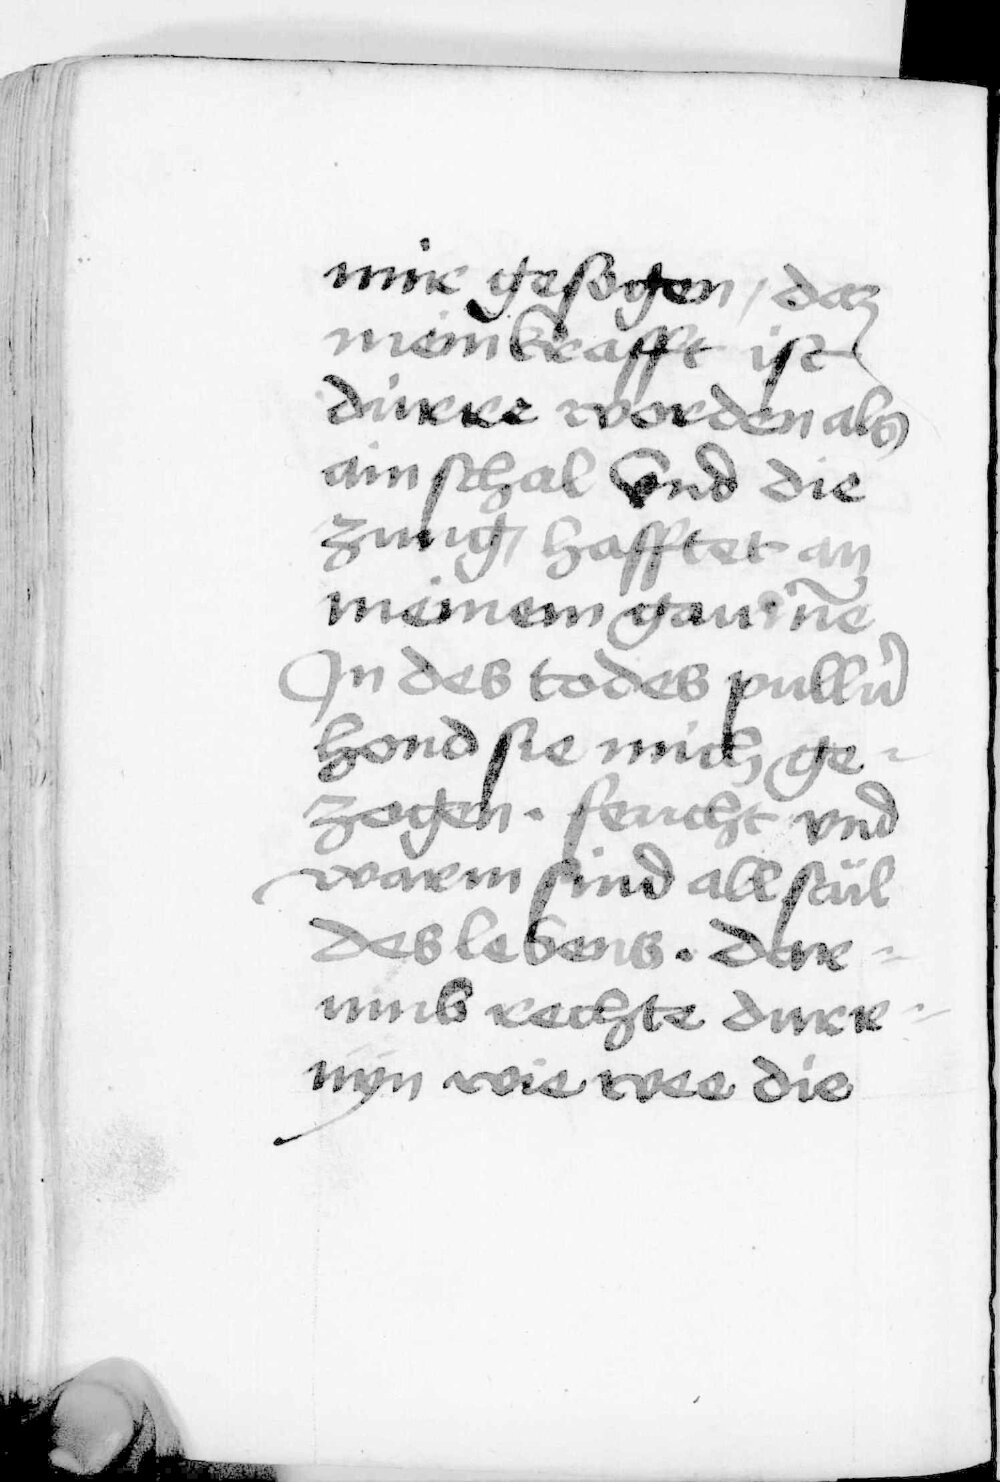 mir gesogen / daz
mein krafft ist
dúrre worden als
ain schal Vnd die
zung / hafftet an
meinem gaume
In des todes pulluͦ
hond sie mich ge-
zogen. feucht vnd
warm sind all stúl
des lebens. dar-
umb rechte durr-
nyn wie wee die